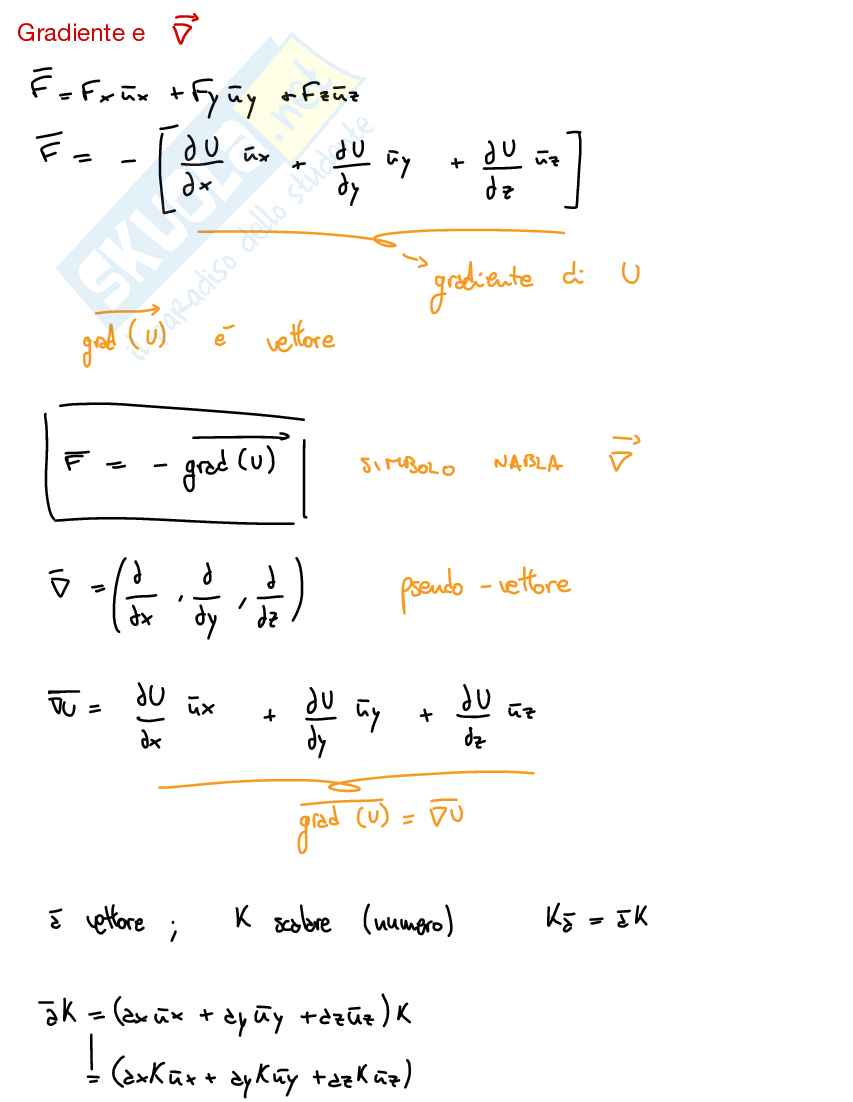 Gradiente e ∇⃗
F̄ = Fx ūx + Fy ūy + Fz ūz
F̄ = - [ ∂U/∂x ūx + ∂U/∂y ūy + ∂U/∂z ūz ]
→ gradiente di U
grad(U) è vettore
F̄ = - grad(U) SIMBOLO NABLA ∇⃗
∇̄ = (∂/∂x , ∂/∂y , ∂/∂z) pseudo-vettore
∇U = ∂U/∂x ūx + ∂U/∂y ūy + ∂U/∂z ūz
grad(U) = ∇U
ā vettore ; K scalare (numero) Kā = āK
āK = (ax ūx + ay ūy + az ūz) K
= (axK ūx + ayK ūy + azK ūz)
SKUOLA.net
il paradiso dello studente